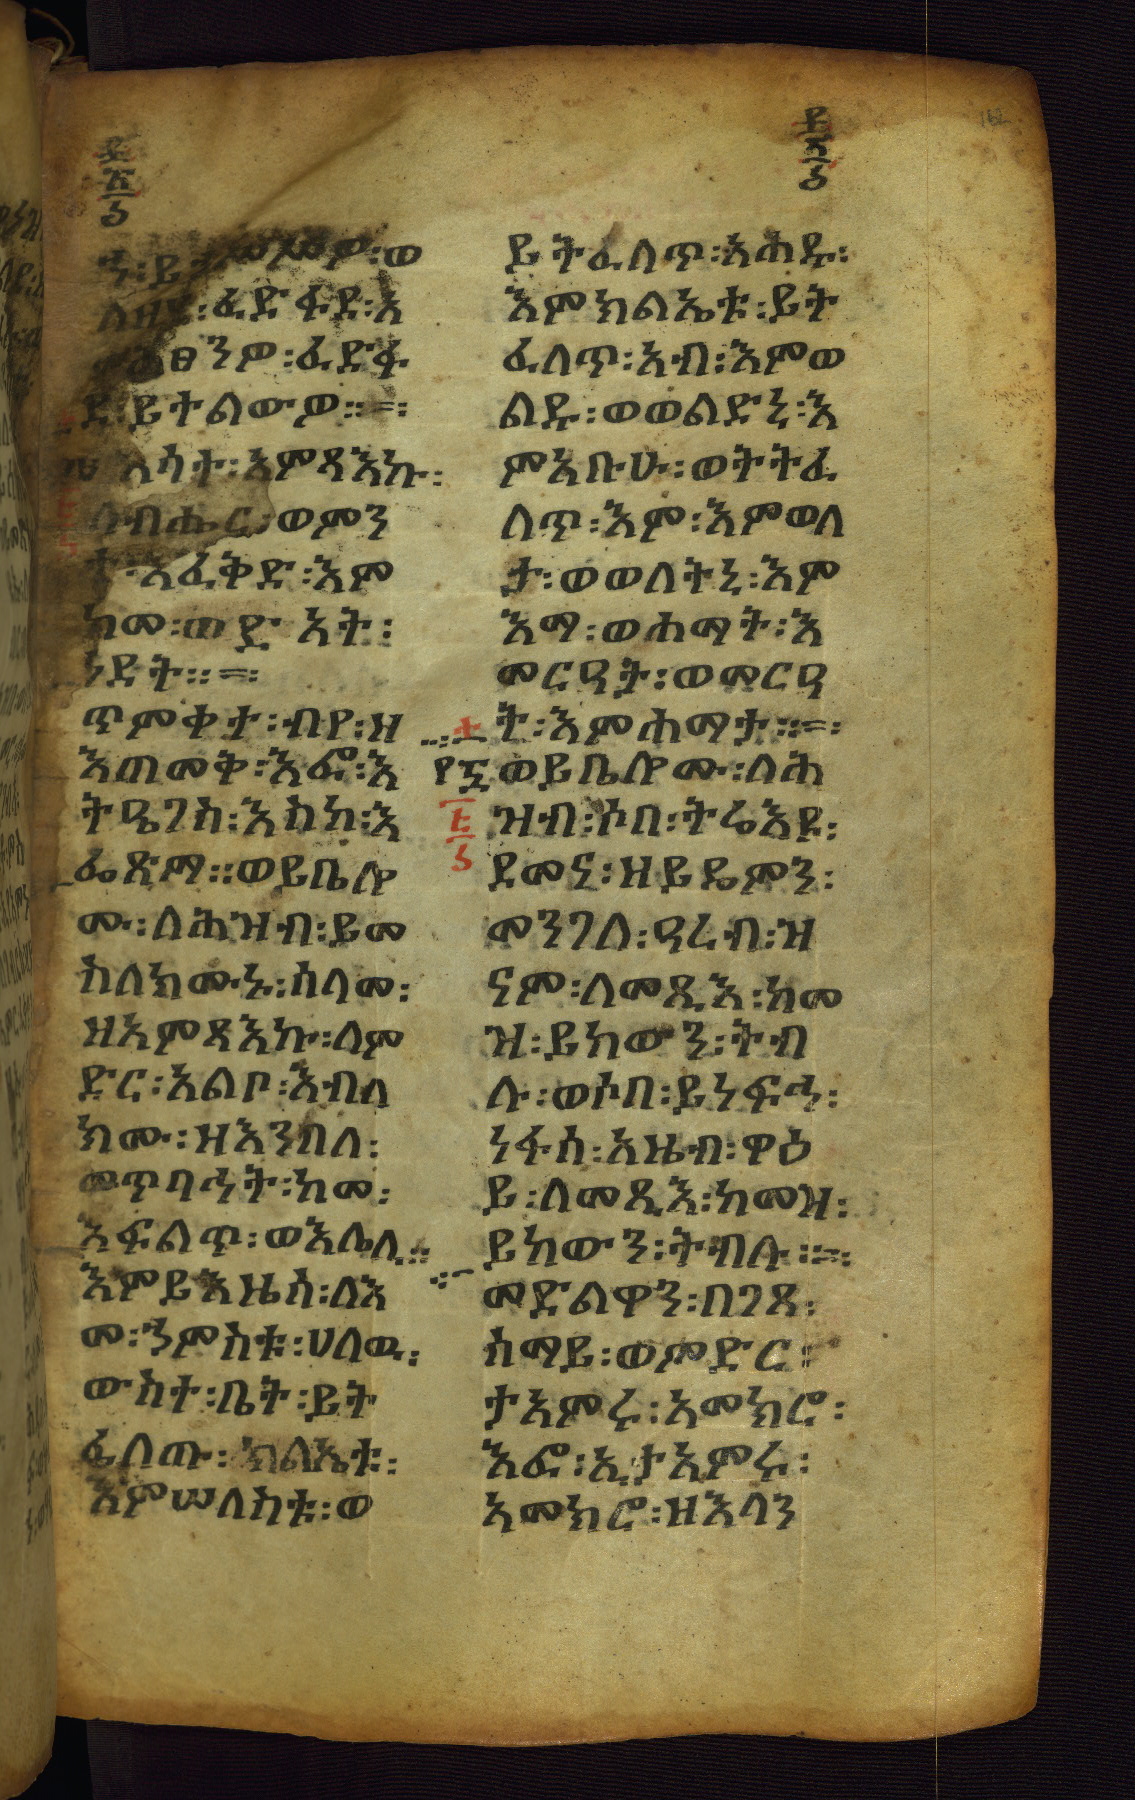 ኅ፡ይትመሠጦ፡ወ
ለዘሂ፡ፈድፋደ፡አ
ማሕፀንዎ፡ፈድፋ
ደ፡ይትልውዎ።=፡
እሳተ፡አምጻእኩ፡
ለብሔር፡ወምን
ተ፡እፈቅድ፡እም
ከመ፡ወድአት፡
ነደት።=፡
ጥምቀተ፡ብየ፡ዘ
እጠመቅ፡እፎ፡እ
ትዔገስ፡እስከ፡እ
ፌጽማ።ወይቤሎ
ሙ፡ለሕዝብ፡ይመ
ስለክሙኑ፡ሰላመ፡
ዘአምጻእኩ፡ለም
ድር፡አልቦ፡እብለ
ክሙ፡ዘእንበለ፡
መጥባሕት፡ከመ፡
እፍልጥ፡ወእሌሊ።
እምይእዜሰ፡ለእ
መ፡ኀምስቱ፡ሀለዉ፡
ውስተ፡ቤት፡ይት
ፈለጡ፡ክልኤቱ፡
እምሠለስቱ፡ወ
ይትፈለጥ፡አሐዱ፡
እምክልኤቱ፡ይት
ፈለጥ፡አብ፡እምወ
ልዱ፡ወወልድኒ፡እ
ምአቡሁ፡ወትትፈ
ለጥ፡እም፡እምወለ
ታ፡ወወለትኒ፡እም
እማ፡ወሐማት፡እ
መርዓት፡ወመርዓ
ት፡እምሐማታ።=፡
ወይቤሎሙ፡ለሕ
ዝብ፡ሶበ፡ትሬእዩ፡
ደመና፡ዘይዴምን፡
መንገለ፡ዓረብ፡ዝ
ናም፡ለመጺእ፡ከመ
ዝ፡ይከውን፡ትብ
ሉ፡ወሶበ፡ይነፍኅ፡
ነፋሰ፡አዜብ፡ዋዕ
ይ፡ለመጺእ፡ከመዝ፡
ይከውን፡ትብሉ።=፡
መድልዋን፡በገጸ፡
ሰማይ፡ወምድር፡
ታአምሩ፡አመክሮ፡
እፎ፡ኢታአምሩ፡
አመክሮ፡ዘእላን